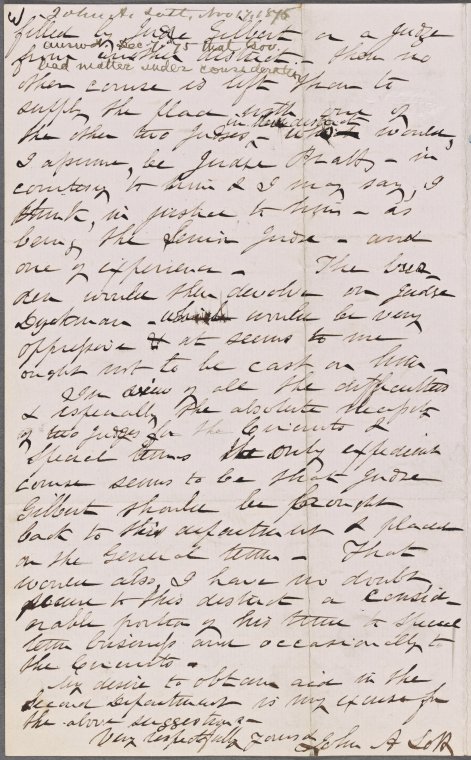 John A. Lott, Nov 17, 1875
filled by Judge Gilbert or a Judge
answd. Dec 75 that Gov.
from another district - then no
had matter under consideration
other course is left than to
supply the place with one of
the other two Judges, in the district - would,
I assume, be Judge Pratt - in
courtesy to him & I may say, I
think, in justice to him - as
being the Senior Judge - and
one of experience - The bur-
den would then devolve on Judge
Dyckman - would be very
oppressive & at seems to me
ought not to be cast on him -
In view of all the difficulties
& especially the absolute necessity
of two Judges for the Circuits &
Special terms the only expedient
course seems to be that Judge
Gilbert should be brought
back to this department & placed
on the General term - That
would also, I have no doubt
secure to this district a consid-
erable portion of his time to Special
term business and occasionally to
the Circuits -
My desire to obtain aid in the
Second Department is my excuse for
the above suggestions -
Very respectfully Yours John A Lott